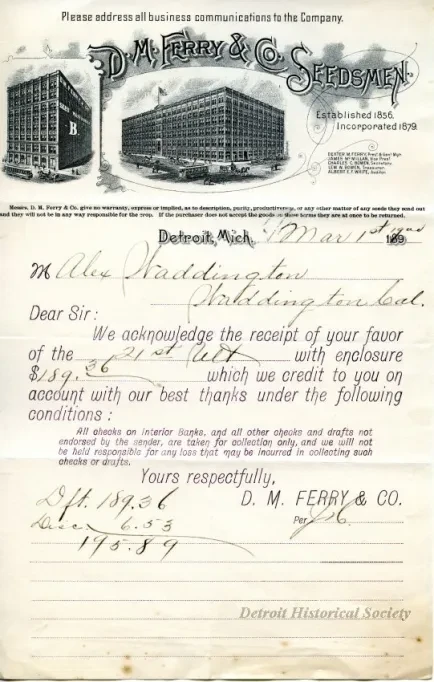 Please address all business communications to the Company.
D. M. Ferry & Co. Seedsmen.
B
Established 1856.
Incorporated 1879.
DEXTER M. FERRY, Prest & Gen'l Mgr.
JAMES McMILLAN, Vice Prest
CHARLES C. BOWEN, Secretary
LEM W. BOWEN, Treasurer
ALBERT E. F. WHITE, Auditor
Messrs. D. M. Ferry & Co. give no warranty, express or implied, as to description, purity, productiveness, or any other matter of any seeds they send out
and they will not be in any way responsible for the crop. If the purchaser does not accept the goods on these terms they are at once to be returned.
Detroit, Mich. Mar 1st 189
M Alex Waddington
Waddington Cal.
Dear Sir:
We acknowledge the receipt of your favor
of the 21st Ult with enclosure
$189.36 which we credit to you on
account with our best thanks under the following
conditions :
All checks on Interior Banks, and all other checks and drafts not
endorsed by the sender, are taken for collection only, and we will not
be held responsible for any loss that may be incurred in collecting such
checks or drafts.
Yours respectfully,
Dft. 189.36 D. M. FERRY & CO.
Disc 6.53 Per
195.89
Detroit Historical Society